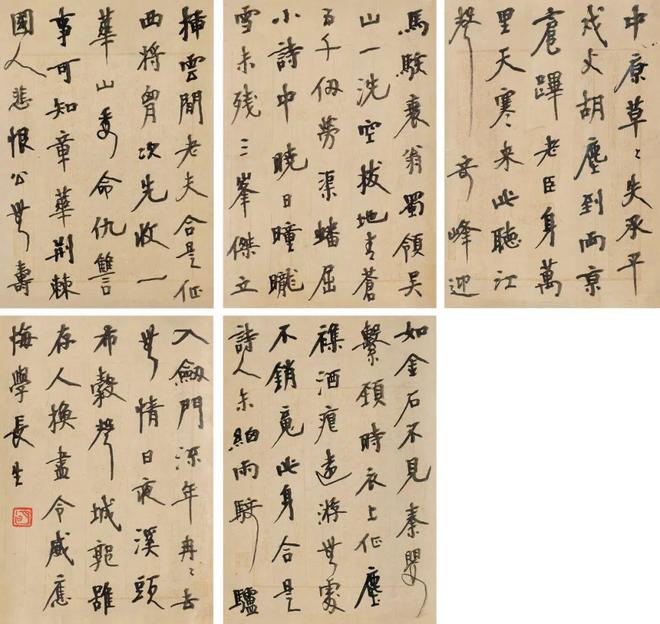 中原草〻失承平
戍火胡塵到兩京
扈蹕老臣身萬
里天寒來此聽江
聲 奇峰迎
馬駭衰翁蜀嶺吳
山一洗空拔地青蒼
五千仞勞渠蟠屈
小詩中 曉日曈曨
雪未殘三峯傑立
插雲間老夫合是征
西將胷次先收一
華山 委命仇讐
事可知章華荊棘
國人悲恨公無壽
如金石不見秦嬰
繫頸時 衣上征塵
襍酒痕遠游無處
不銷魂此身合是
詩人未細雨騎驢
入劒門 流年冉〻去
無情日夜溪頭
布穀聲城郭雖
存人換盡令威應
悔學長生